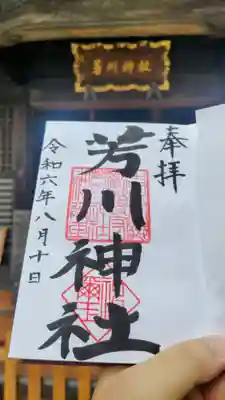 芳川神社
奉拝
芳川神社
令和六年八月十日